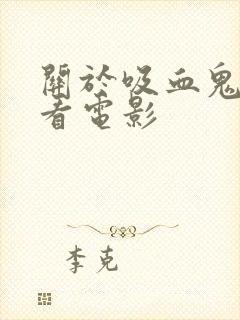 關於吸血鬼
者電影
李克